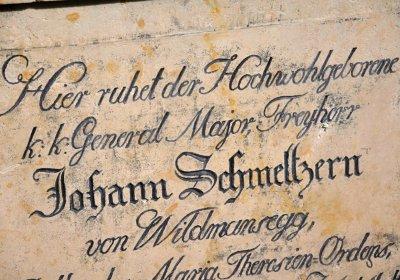 Hier ruhet der Hochwohlgeborene
k. k. General Major, Freyhörr
Johann Schmeltzern
von Wildmansegg,
Maria Theresien-Ordens,